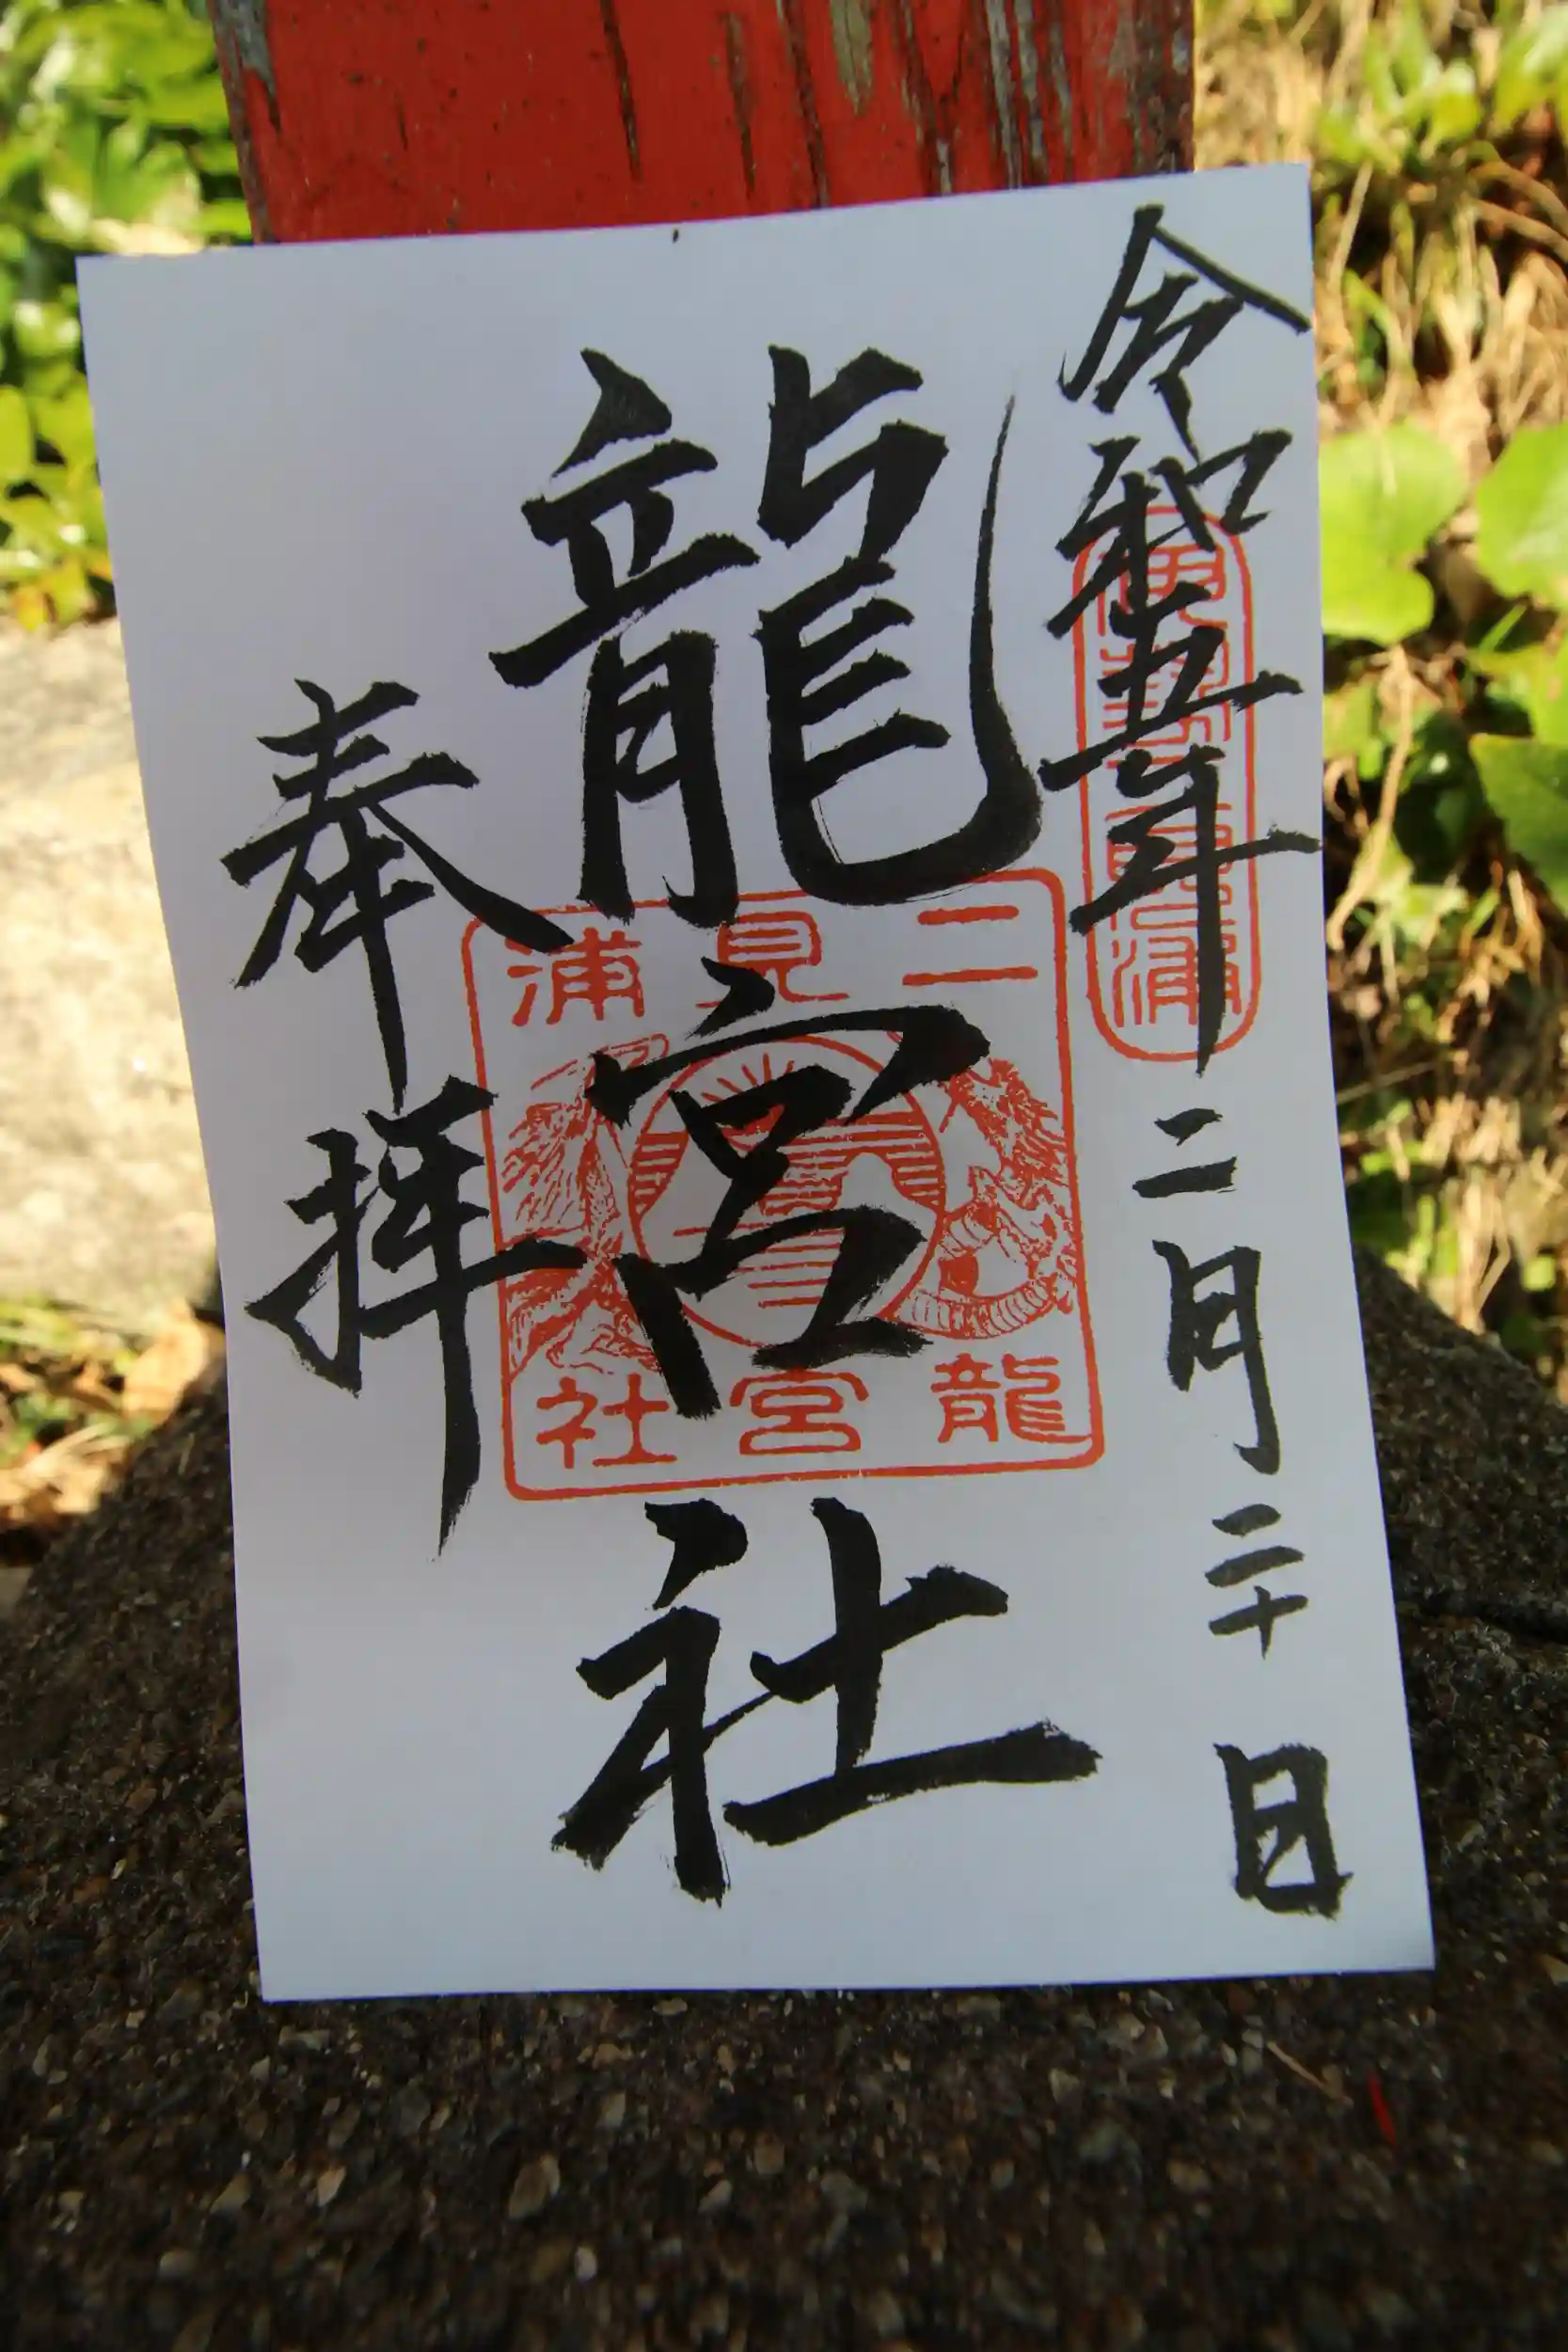 令和五年二月二十日
伊勢二見浦
龍宮社
二見浦
龍宮社
奉拝